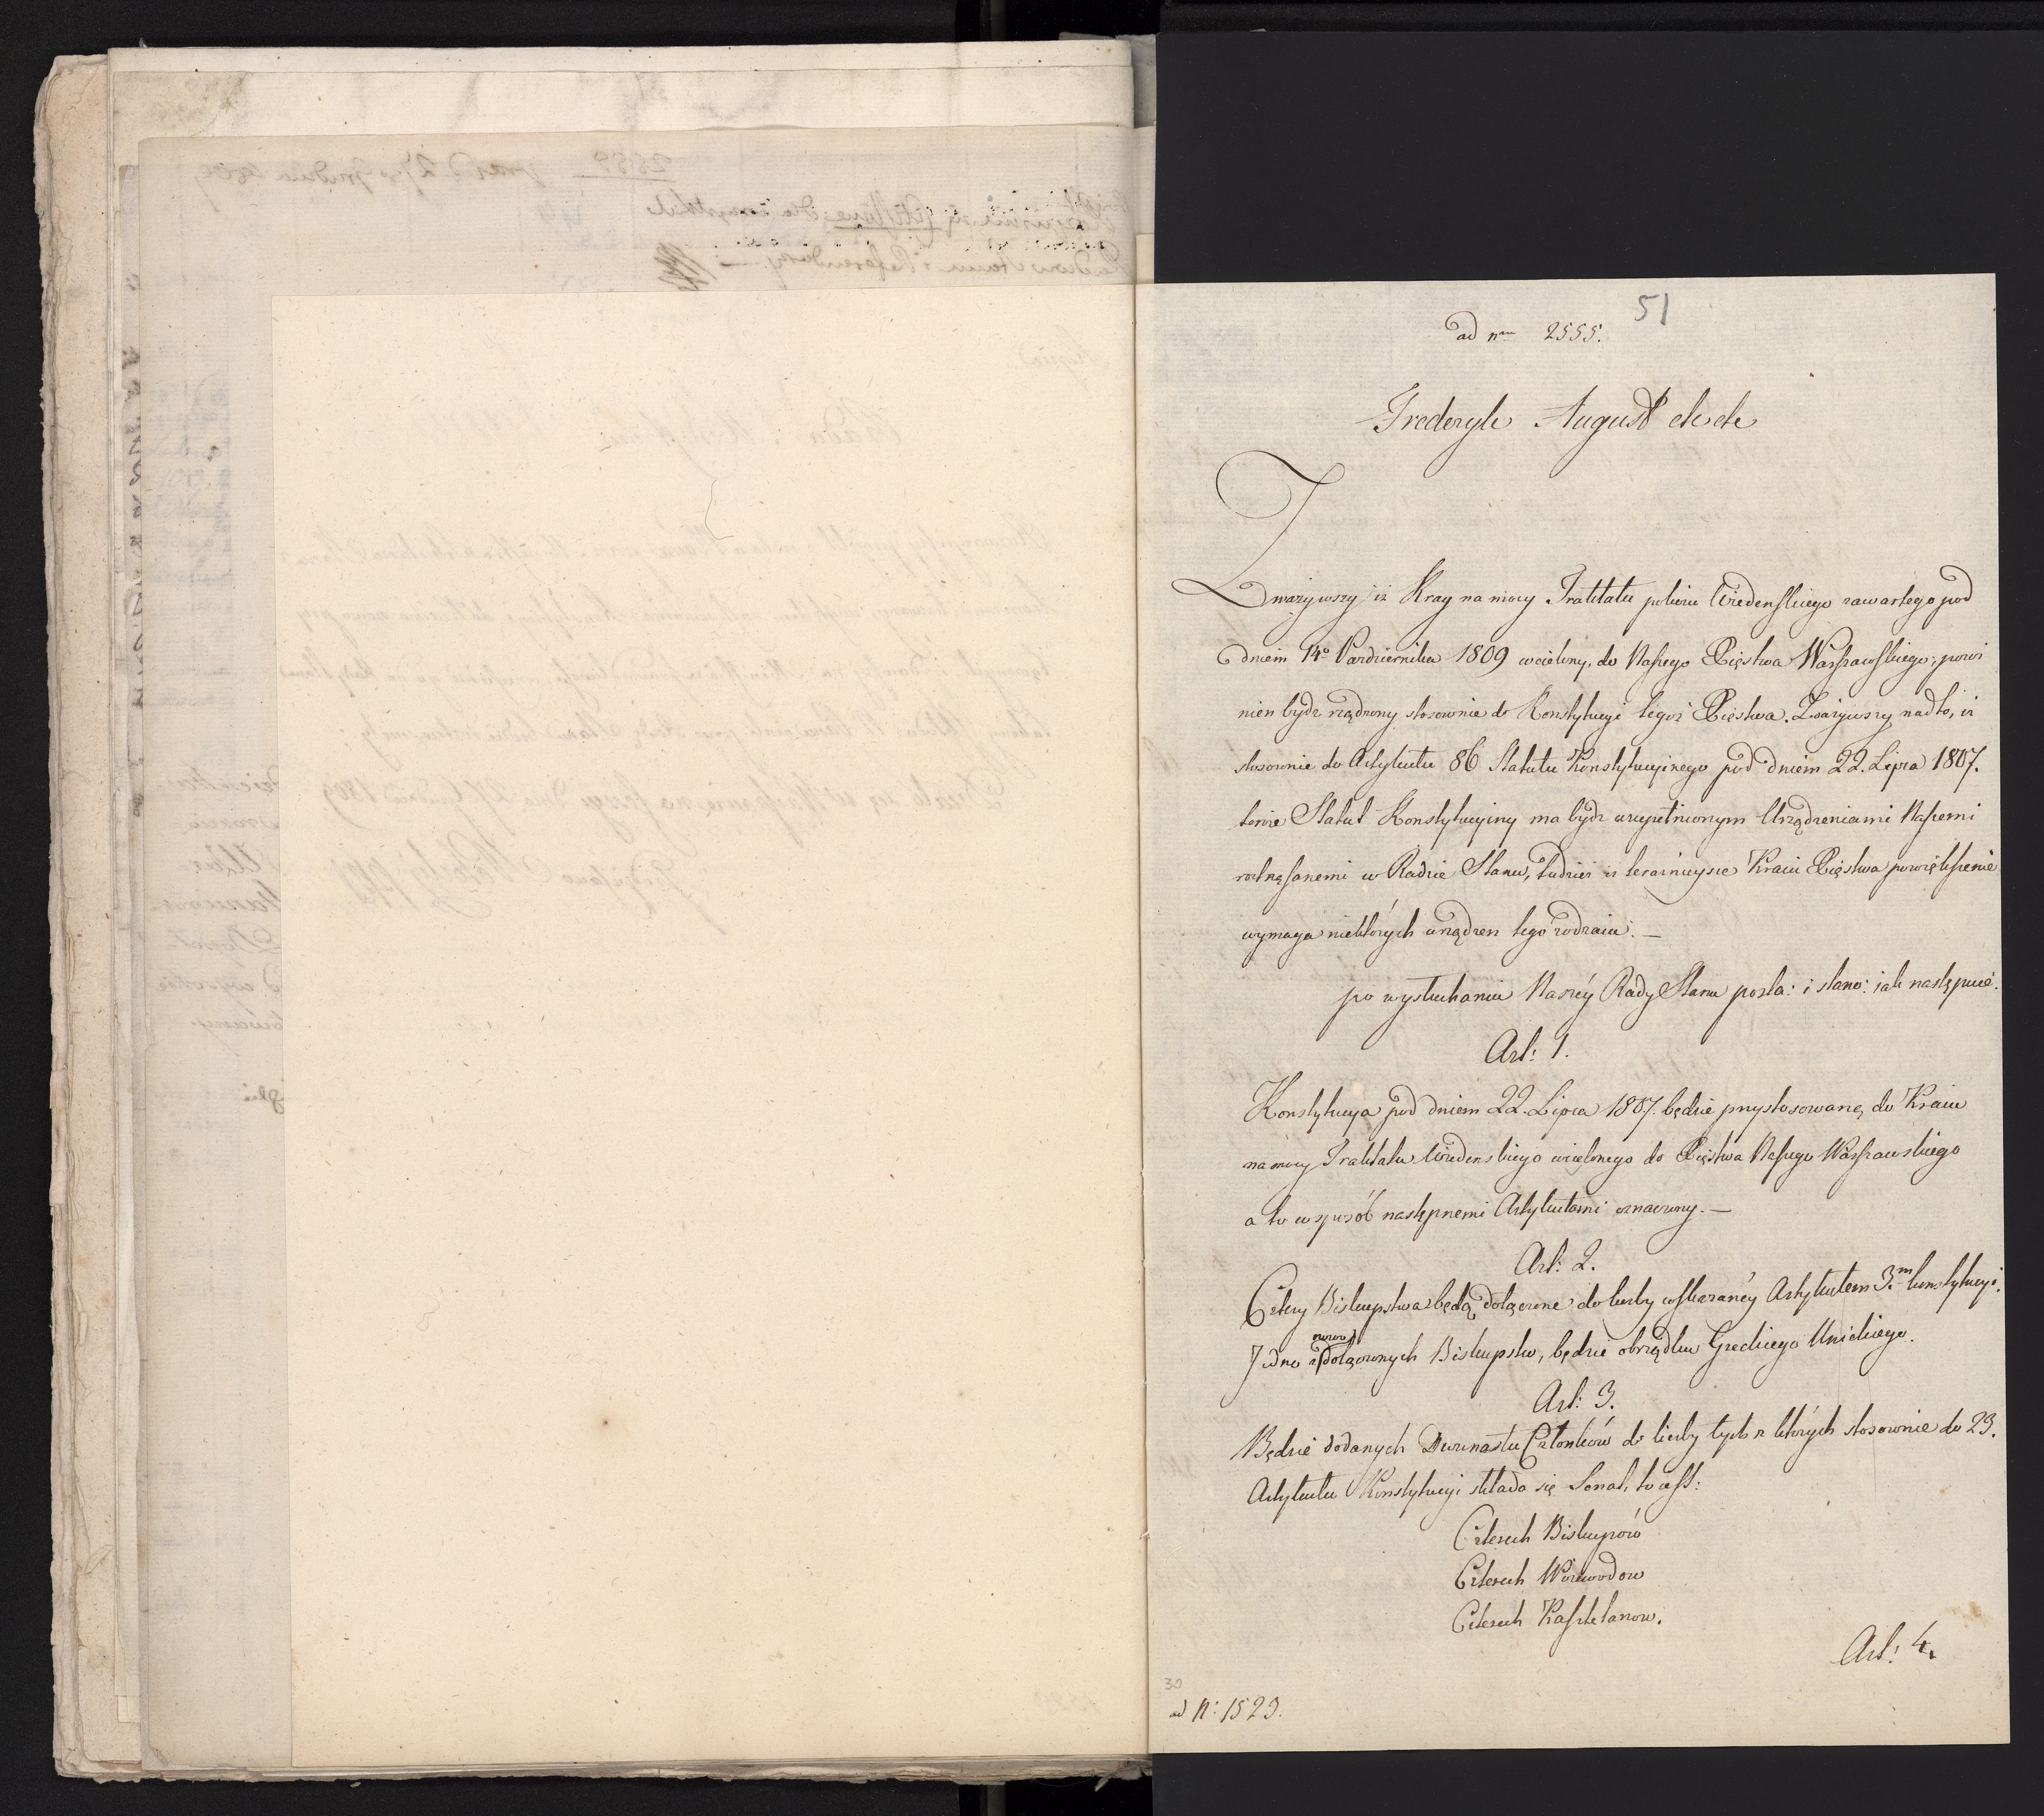 51
ad nrm 2555.
Fryderyk August etc etc
Zważywszy iż Kray na mocy Traktatu pokoiu Wiedeńskiego zawartego pod
dniem 14º Października 1809 wcielony, do Naszego Xięstwa Warszawskiego, powi
nien bydz rządzony stosownie do Konstytucyi tegoż Xięstwa. Zważywszy nadto, iż
stosownie do Artykułu 86 Statutu Konstytucyinego pod dniem 22. Lipca 1807.
tenże Statut Konstytucyiny ma bydz uzupełnionym Urządzeniami Naszemi
roztrząsanemi w Radzie Stanu, tudzież iż teraźnieysze Kraiu Xięstwa powiększenie
wymaga niektórych urządzen tego rodzaiu. —
po wysłuchaniu Naszéy Rady Stanu posta: i stano: iak następuie.
Art: 1.
Konstytucya pod dniem 22. Lipca 1807. będzie przystosowaną do Kraiu
na mocy Traktatu Wiedenskiego wcielonego do Xięstwa Naszego Warszawskiego
a to w sposób następnemi Artykułami oznaczony. —
Art: 2.
Cztery Biskupstwa będą dołączone do liczby wskazanéy Artykułem 3.m konstytucyi.
Jedno z nowo dołączonych Biskupstw, będzie obrządku Greckiego Unickiego.
Art: 3.
Będzie dodanych Dwunastu Członków do liczby tych z których stosownie do 23.
Artykułu Konstytucyi składa się Senat, to iest:
Czterech Biskupów
Czterech Woiewodow
Czterech Kasztelanow.
Art: 4.
30
ad N: 1523.